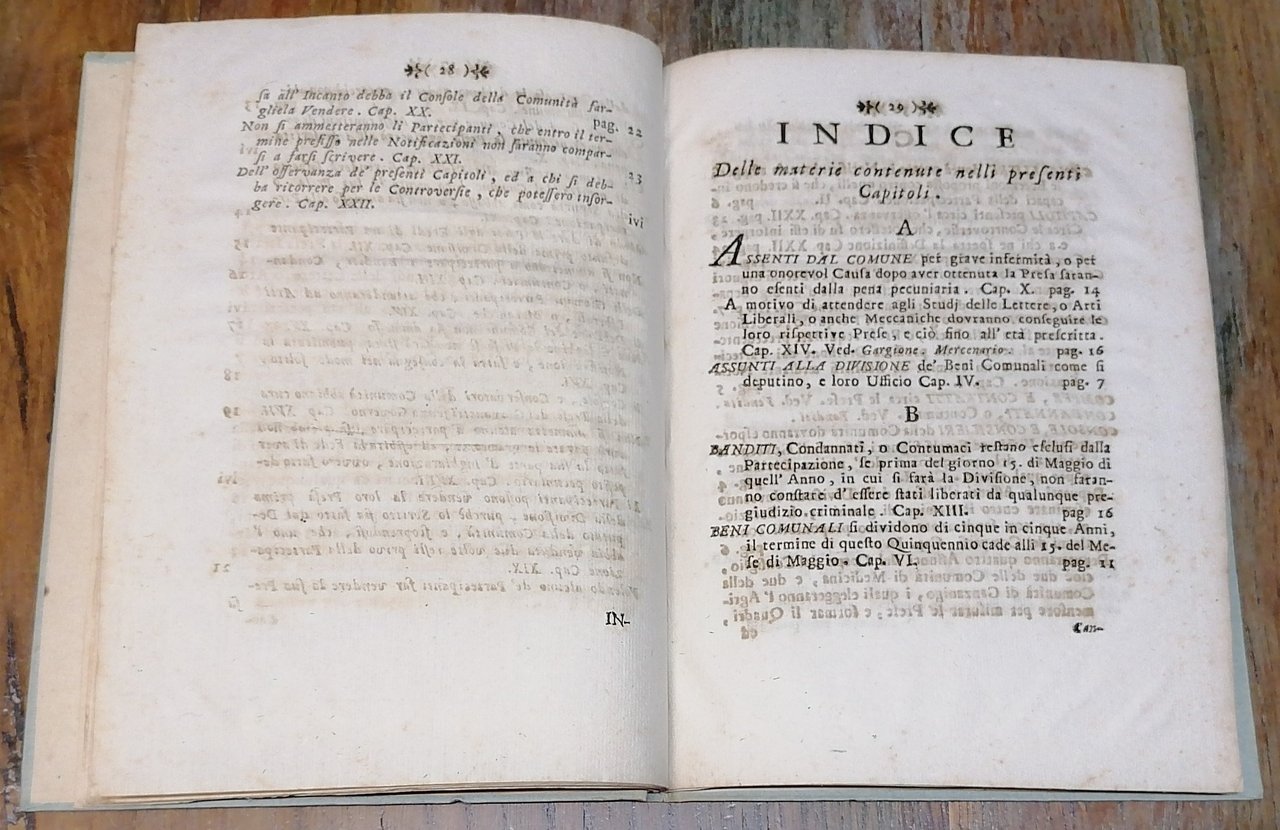 ( 28 )
sa all' Incanto debba il Console della Comunità far-
gliela Vendere. Cap. XX. pag. 22
Non si ammetteranno li Partecipanti, che entro il ter-
mine prefisso nelle Notificazioni non saranno compar-
si a farsi scrivere. Cap. XXI. 23
Dell' osservanza de' presenti Capitoli, ed a chi si deb-
ba ricorrere per le Controversie, che potessero insor-
gere. Cap. XXII. ivi
IN-
( 29 )
INDICE
Delle materie contenute nelli presenti
Capitoli.
A
ASSENTI DAL COMUNE per grave infermità, o per
una onorevol Causa dopo aver ottenuta la Presa saran-
no esenti dalla pena pecuniaria. Cap. X. pag. 14
A motivo di attendere agli Studj delle Lettere, o Arti
Liberali, o anche Meccaniche dovranno conseguire le
loro rispettive Prese, e ciò fino all' età prescritta.
Cap. XIV. Ved. Gargione. Mercenario. pag. 16
ASSUNTI ALLA DIVISIONE de' Beni Comunali come si
deputino, e loro Ufficio Cap. IV. pag. 7
B
BANDITI, Condannati, o Contumaci restano esclusi dalla
Partecipazione, se prima del giorno 15. di Maggio di
quell' Anno, in cui si farà la Divisione, non faran-
no constare d' essere stati liberati da qualunque pre-
giudizio criminale. Cap. XIII. pag. 16
BENI COMUNALI si dividono di cinque in cinque Anni,
il termine di questo Quinquennio cade alli 15. del Me-
se di Maggio. Cap. VI. pag. 11
Can-